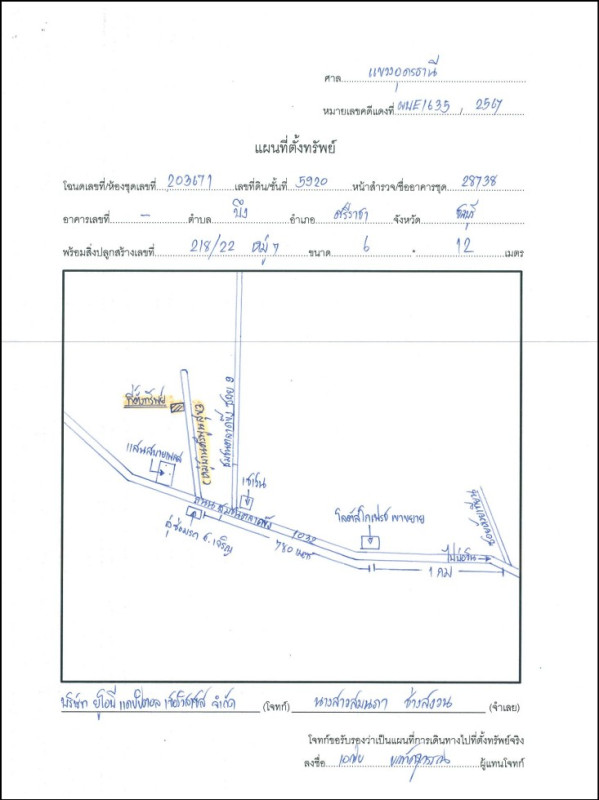 ศาล แขวงอุดรธานี
หมายเลขคดีแดงที่ ผบE1635 , 2567
แผนที่ตั้งทรัพย์
โฉนดเลขที่/ห้องชุดเลขที่ 203671 เลขที่ดิน/ชั้นที่ 5920 หน้าสำรวจ/ชื่ออาคารชุด 28738
อาคารเลขที่ - ตำบล บึง อำเภอ ศรีราชา จังหวัด ชลบุรี
พร้อมสิ่งปลูกสร้างเลขที่ 218/22 หมู่ 7 ขนาด 6 * 12 เมตร
ที่ตั้งทรัพย์
ซอย 9
แสนสบายเพลส
เซเว่น
ถนน
1032
โลตัสโกเฟรช พาขยาย
อู่ซ่อมรถ ช.เจริญ
780 เมตร
ไปบ่อวิน
1 กม
บริษัท ยูโอบี แคปปิตอล เซอร์วิสเซส จำกัด (โจทก์) นางสาวสมนภา ช่างสงวน (จำเลย)
โจทก์ขอรับรองว่าเป็นแผนที่การเดินทางไปที่ตั้งทรัพย์จริง
ลงชื่อ ผู้แทนโจทก์